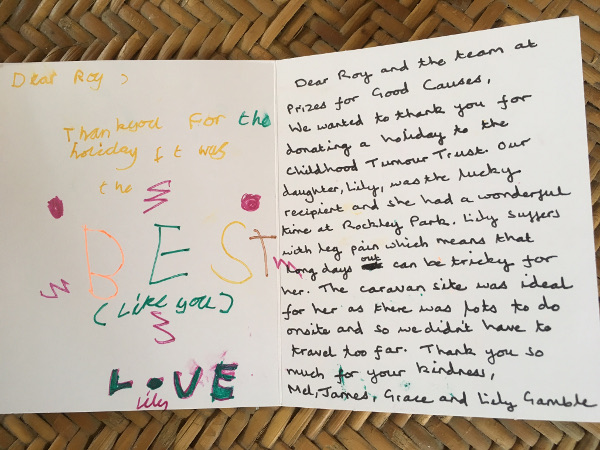 Dear Roy,
Thankyou For the
holiday it was
the
BEST
(Like you)
LOVE
Lily
Dear Roy and the team at
Prizes for Good Causes,
We wanted to thank you for
donating a holiday to the
Childhood Tumour Trust. Our
daughter, Lily, was the lucky
recipient and she had a wonderful
time at Rockley Park. Lily suffers
with leg pain which means that
long days out can be tricky for
her. The caravan site was ideal
for her as there was lots to do
onsite and so we didn't have to
travel too far. Thank you so
much for your kindness,
Mel, James, Grace and Lily Gamble